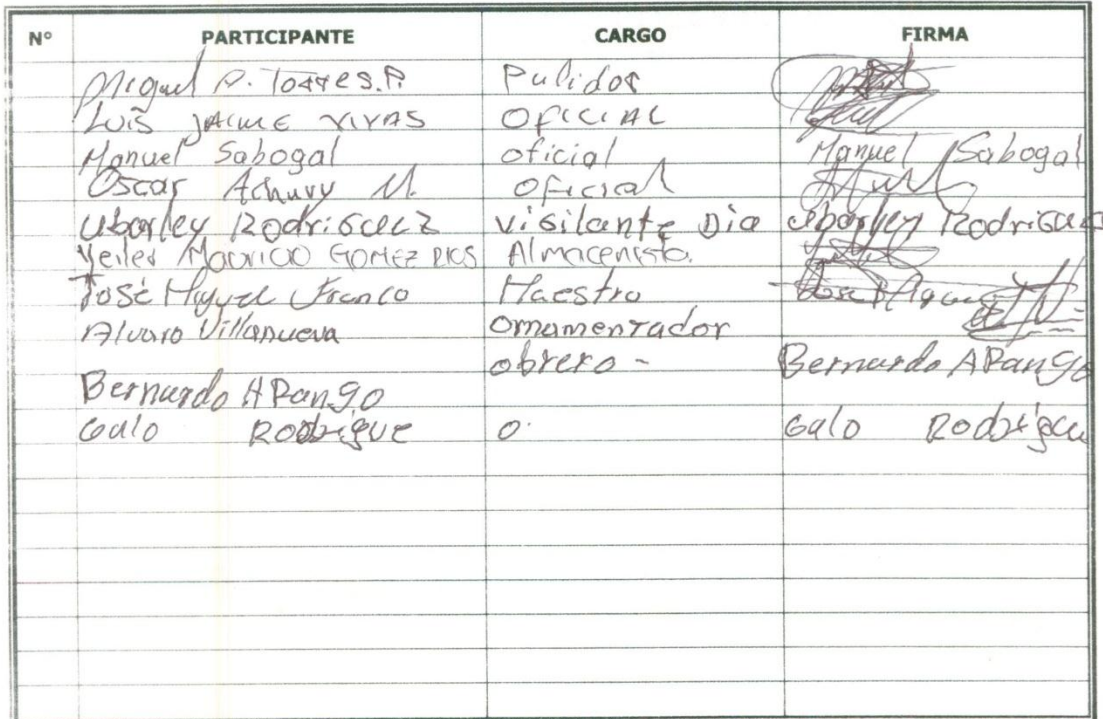 N° PARTICIPANTE CARGO FIRMA
Miguel A. Torres.P. Pulidor
Luis JAIME VIVAS OFICIAL
Manuel Sabogal oficial Manuel Sabogal
Oscar Achury M. Oficial
Ubarley Rodriguez Vigilante Dia Ubarley Rodriguez
Yeiler Mauricio GOMEZ RIOS Almacenista.
José Miguel Franco Maestro
Alvaro Villanueva ornamentador
obrero -
Bernardo ARango Bernardo ARango
Galo Rodrigue o. Galo Rodrigue